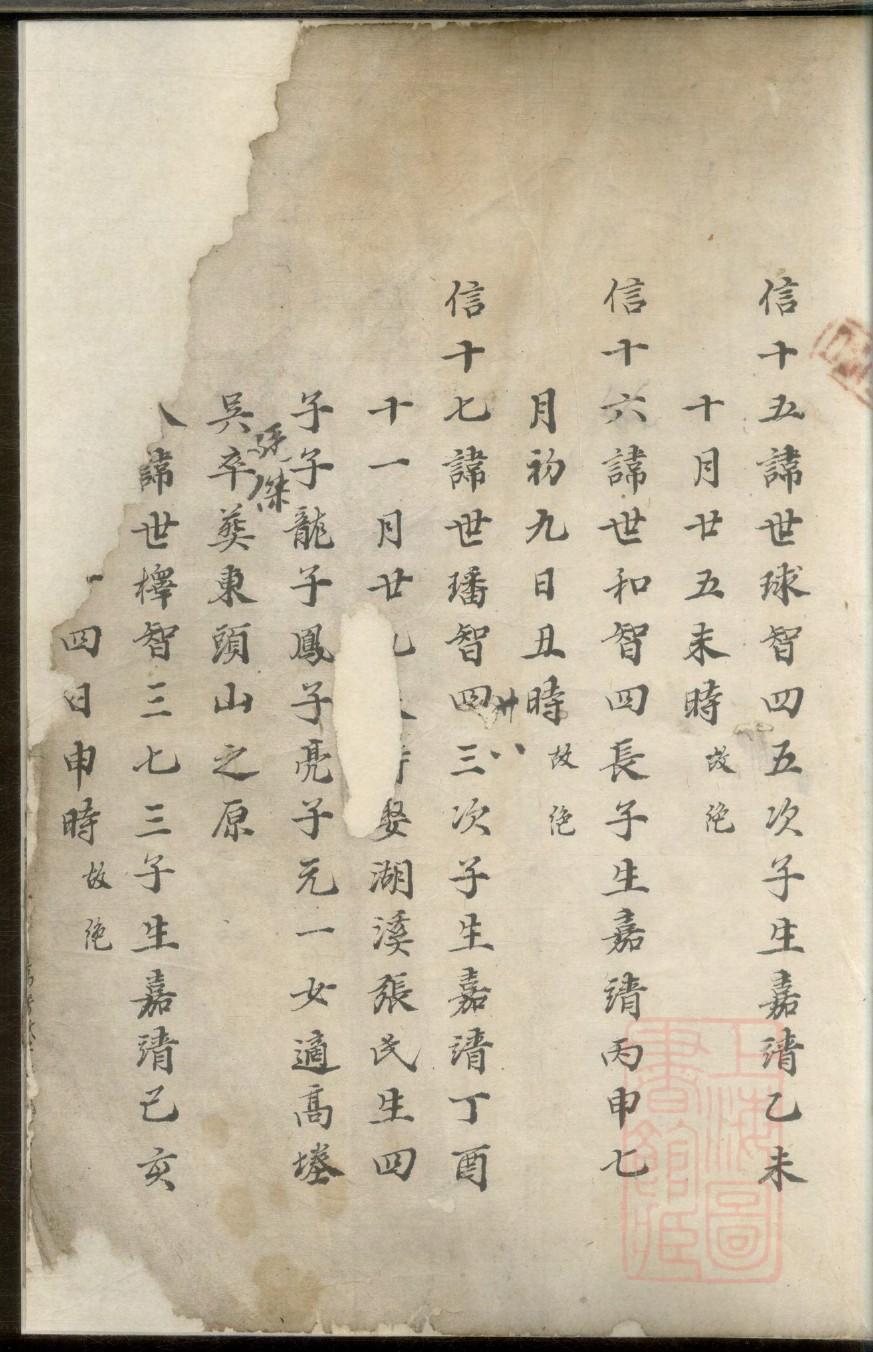 信十五諱世球智四五次子生嘉靖乙未
十月廿五未時故絶
信十六諱世和智四長子生嘉靖丙申七
月初九日丑時故絶
信十七諱世璠智四三次子生嘉靖丁酉
十一月廿娶湖溪張氏生四
子子龍子鳳子亮子元一女適髙塘
吳卒葬東頭山之原
傑
諱世檡智三七三子生嘉靖己亥
四日申時故絶
上海圖書館藏